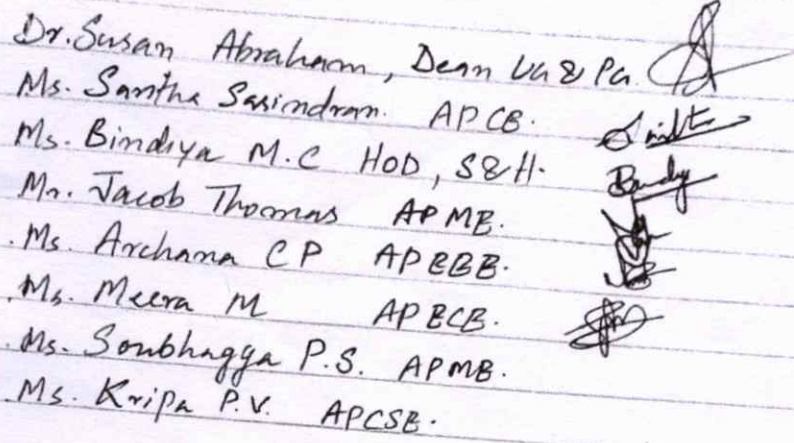 Dr. Susan Abraham, Dean UG & PG.
Ms. Santha Sasindran. APCE.
Ms. Bindiya M.C HOD, S&H.
Mr. Jacob Thomas APME.
Ms. Archana C P APEEE.
Ms. Meera M APECE.
Ms. Soubhagya P.S. APME.
Ms. Kripa P.V. APCSE.